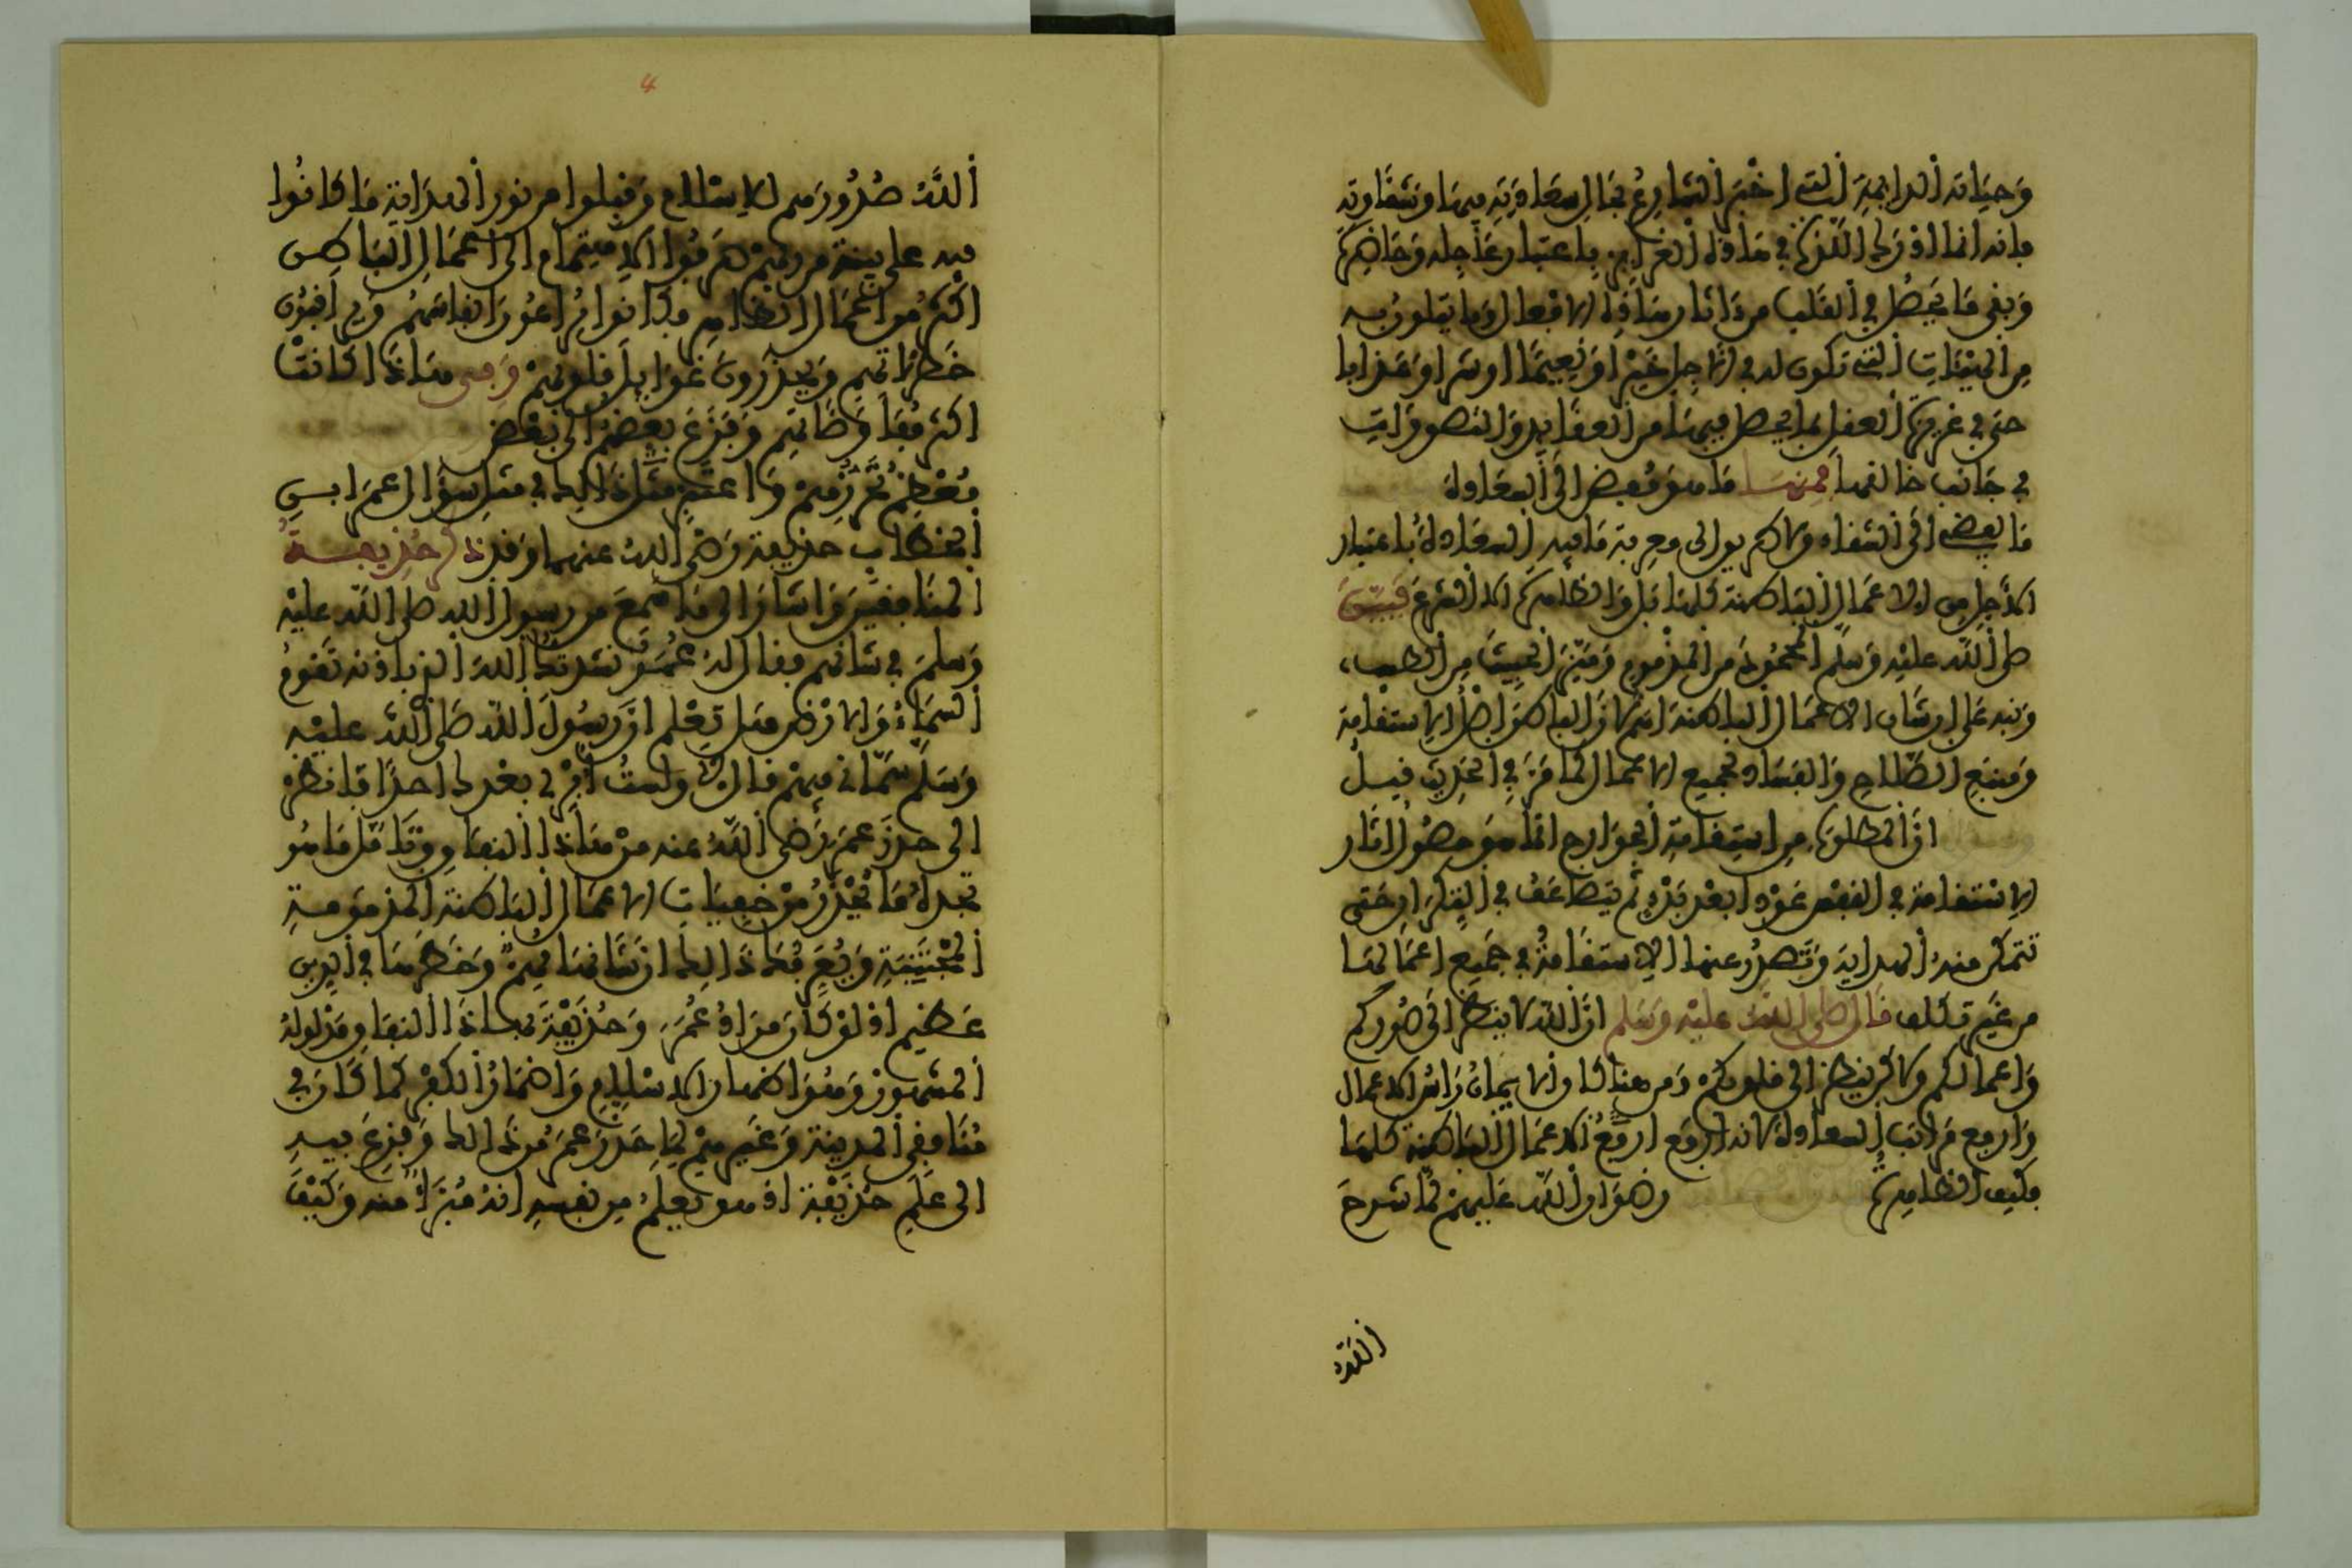 وَحيَاته الدايمَة التى اخبَر الشارعُ بحَال سعَادَته فيهَا وشقَاوته
فانه انما ادْرَك اللذة فى هَاذه الغرايز باعتبار عَاجله وَحَاضِره
وَبقى مَا يَحصُل فى القَلب من ءَاثار هَاذه الافعال وَما يَتلون به
مِن الهيئَاتِ التى تكون له فى الآجل خَيرْا اوْ نعِيمًا او شرا وَعَذابا
حتى فى غريزة العقل بما يحصل فيهَا من العقَايد وَالتصورَاتِ
فى جَانب خالقها فمنهَا مَا هوَ مُفض الى السعَادة
مَا يفضى الى الشقاء وَلا طريق الى معرفة مَا فيه السعَادة باعتبار
الآجل من الاعمَال البَاطنة كلهَا بَل وَالظاهرة الا الشرع فَبيّنَ
صلى الله عليْه وَسلم المحمُودَ من المذْموم وَميّزَ الخبيثَ من الطيب
وَنبه على ان شَان الاعمَال الباطنة اهم لان الباطن اصْل الاستقامة
وَمنبَع الصّلاح وَالفسَاد لجميع الاعمال كما مَرّ فى الحَديث قيل
ان المطلوب من استِقامَة الجوَارح انما هوَ حصُول ءاثار
الاسْتقامة فى النفس عَوْدا بعْد بَدْءٍ ثم تتضاعَف فى التكرَار حَتى
تتمكن منه الهداية وَتَصدُر عنها الاستقَامةُ فى جَميع اعمَالهَا
من غيَر تكلف قَال صلى الله عليْه وَسَلم انّ الله لا ينظر الى صُوَركم
وَاعمالكم ولاكن ينظر الى قلوبكم وَمن هنا كان الايمانُ رَاسُ الاعمال
وَارفع مَرَاتب السعادة لانه ارفع الاعمَال البَاطنة كلهَا
فكيف الظاهرة رضوَان الله عَليهمْ لمّا شرحَ
اللهُ
4
اللهُ صُدُورَهم للاسْلام وَقبلوا من نور الهدَاية مَا كانُوا
فيه على بينة من ربهمْ صَرفُوا الاهتِمام الى اعمَال البَاطن
اكثر من اعمَال الظاهر فكانوا يُرَاعُونَ انفاسَهُم وَيرَاقبُون
خَطرَاتهم وَيحذَرُونَ غوَايل قلوبهمْ وَفى هَاذَا كانتْ
اكثر مُفَاوضَاتهم وَفزَعَ بعضهم الى بَعْض
مُعْظم تحرّزهمْ وَاعتَبر مثل ذَالك فى مثل سؤَال عمَر ابن
الخطاب حذيفة رَضى الله عنهما وَقد ذكر حُذيفة
المنَافقينَ وَاشَارَ الى مَا سَمعَ من رَسول الله صلى الله عليْه
وَسلمَ فى شانهم فقال له عمَر نشدتكَ اللهَ الذى باذنه تقومُ
السمَاءُ وَالارْض هَل تعْلم انَّ رَسُولَ الله صَلى اللهُ عليْه
وَسَلم سَمّانى فيهمْ قال لا وَلستُ ابْرى بعْدك احدًا فانظرْ
الى حذر عمَر رَضى اللهُ عنه منْ هَاذا النفاق وَتَامّل مَا هُو
تجدْهُ مَا يحْذَرُ منْ خفِيَاتِ الاعمَال البَاطنة المذمومة
المُجْتَنَبَةِ وَيُعرّفكَ ذَالك ان شَانهَا مُهمّ وَخطرهَا فى الدين
عَظيم اذ لوْ كَان مرَادُ عُمَر وَحُذَيْفَةَ بهاذَا النفاق مَدْلولهُ
المشهور وَهوَ اظهار الاسْلام وَاضمَارُ الكفر كما كَان فى
مُنَافقى المدينة وَغيرهمْ لَمَا حَذرَ عمَر مِن ذَالك وَفزعَ فيهِ
الى عَلم حُذيْفة اذ هو يعلم مِن نفسه انهُ مُبَرأ منه وَكيْفَ